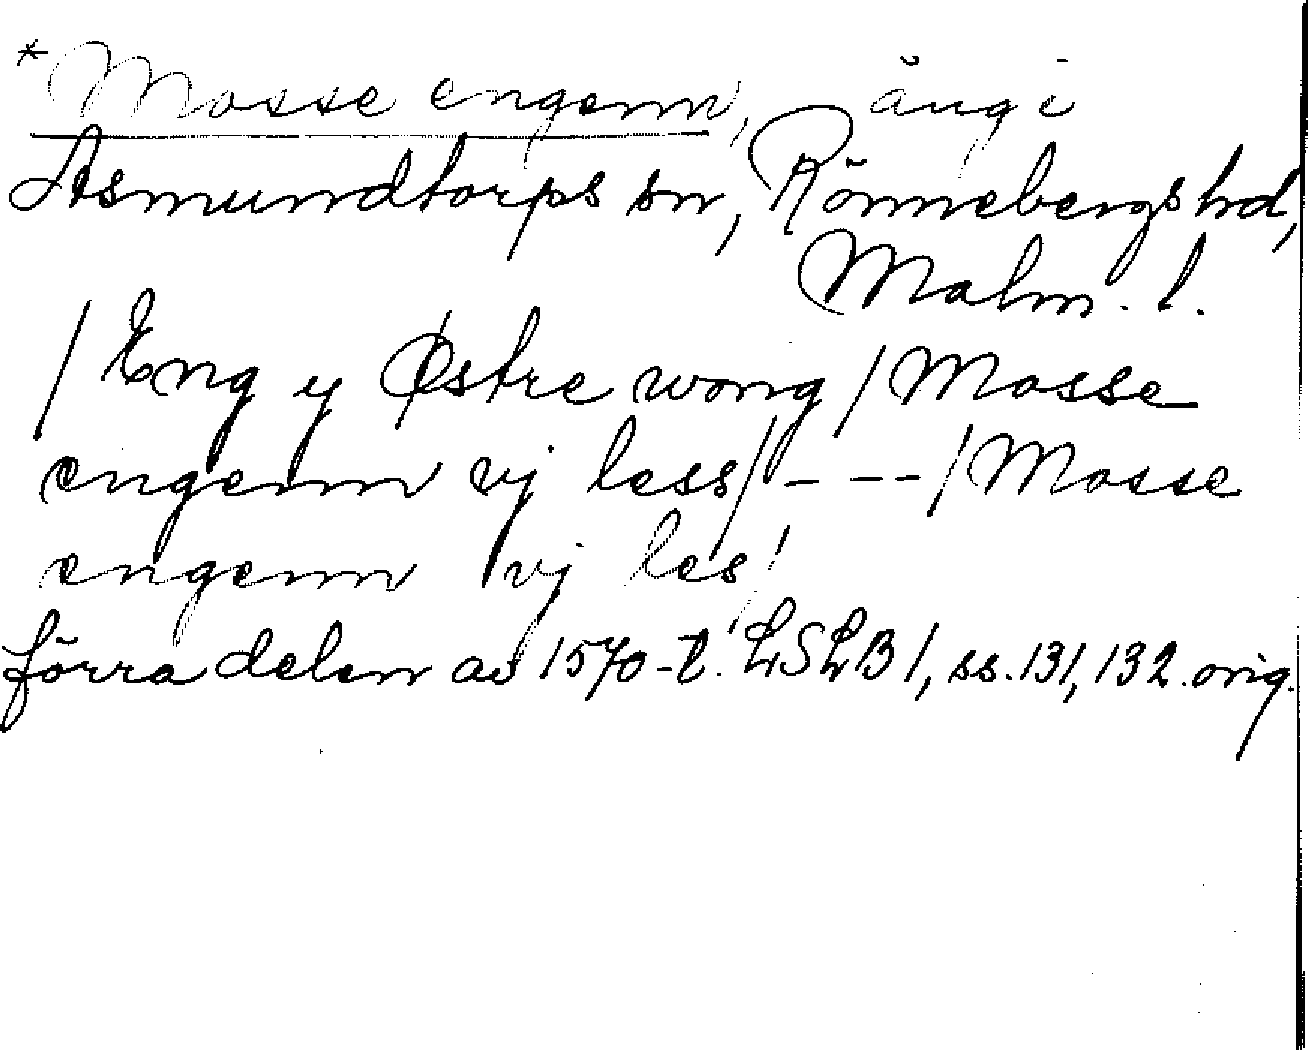 *Mosse engenn, äng i
Asmundtorps sn, Rönnebergs hd,
Malm. l.
/ Eng y Østre wong / Mosse
engenn vj less / - - - / Mosse
engenn vj les /
förra delen av 1570-t. LSLB 1, ss. 131, 132. orig.